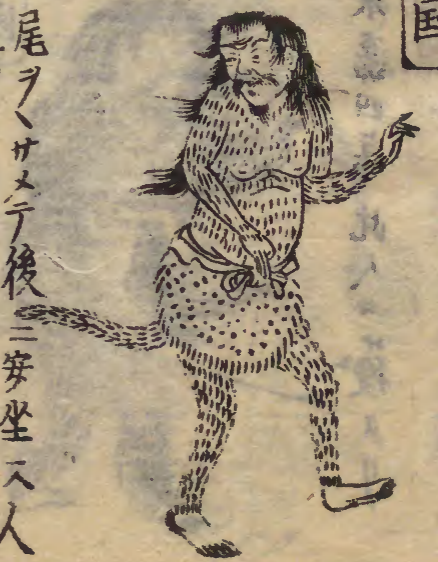 国
尾ヲヽサメテ後ニ安坐ス人